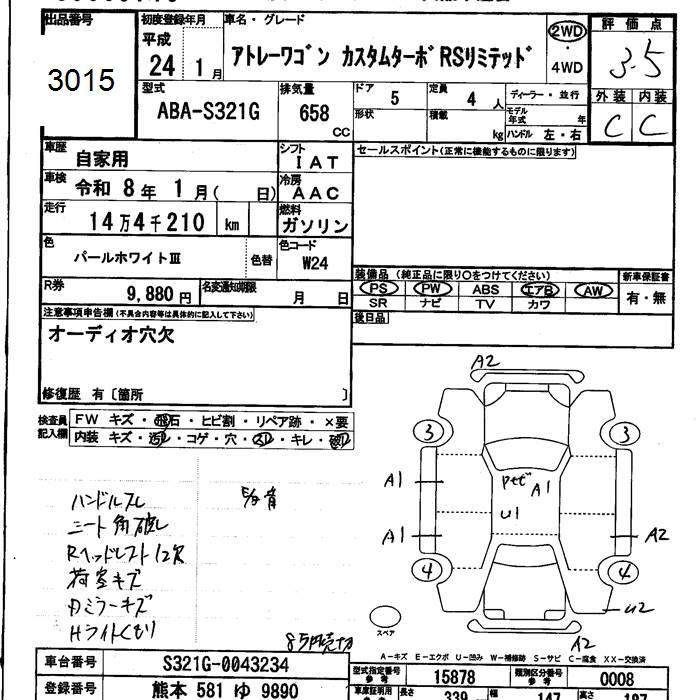 出品番号
3015
初度登録年月
平成
24 1月
車名・グレード
アトレーワゴン カスタムターボRSリミテッド
2WD
・
4WD
評価点
3.5
外装 内装
C C
型式
ABA-S321G
排気量
658
CC
ドア
5
定員
4人
ディーラー・並行
形状
積載
kg
モデル年式
年
ハンドル 左・右
車歴
自家用
シフト
IAT
セールスポイント(正常に機能するものに限ります)
車検
令和 8年 1月( 日)
冷房
AAC
走行
14万4千210 km
燃料
ガソリン
色
パールホワイトⅢ
色替
色コード
W24
R券
9,880円
名変通知期限
月 日
装備品(純正品に限り○をつけてください)
PS PW ABS エアB AW
SR ナビ TV カワ
新車保証書
有・無
後日品
注意事項申告欄(不具合内容等は具体的に記入して下さい)
オーディオ穴欠
修復歴 有〔箇所 〕
検査員記入欄
FW キズ・飛石・ヒビ割・リペア跡・×要
内装 キズ・汚レ・コゲ・穴・スレ・キレ・破レ
A2
3
3
A1
A1
U1
A1
A2
4
4
U2
A2
ハンドルスレ
シート角破レ
荷室キズ
Hライトくもり
スペア
A-キズ E-エクボ U-凹み W-補修跡 S-サビ C-腐食 XX-交換済
車台番号
S321G-0043234
型式指定番号
15878
類別区分番号
0008
登録番号
熊本 581 ゆ 9890
長さ
339
幅
147
高さ
187